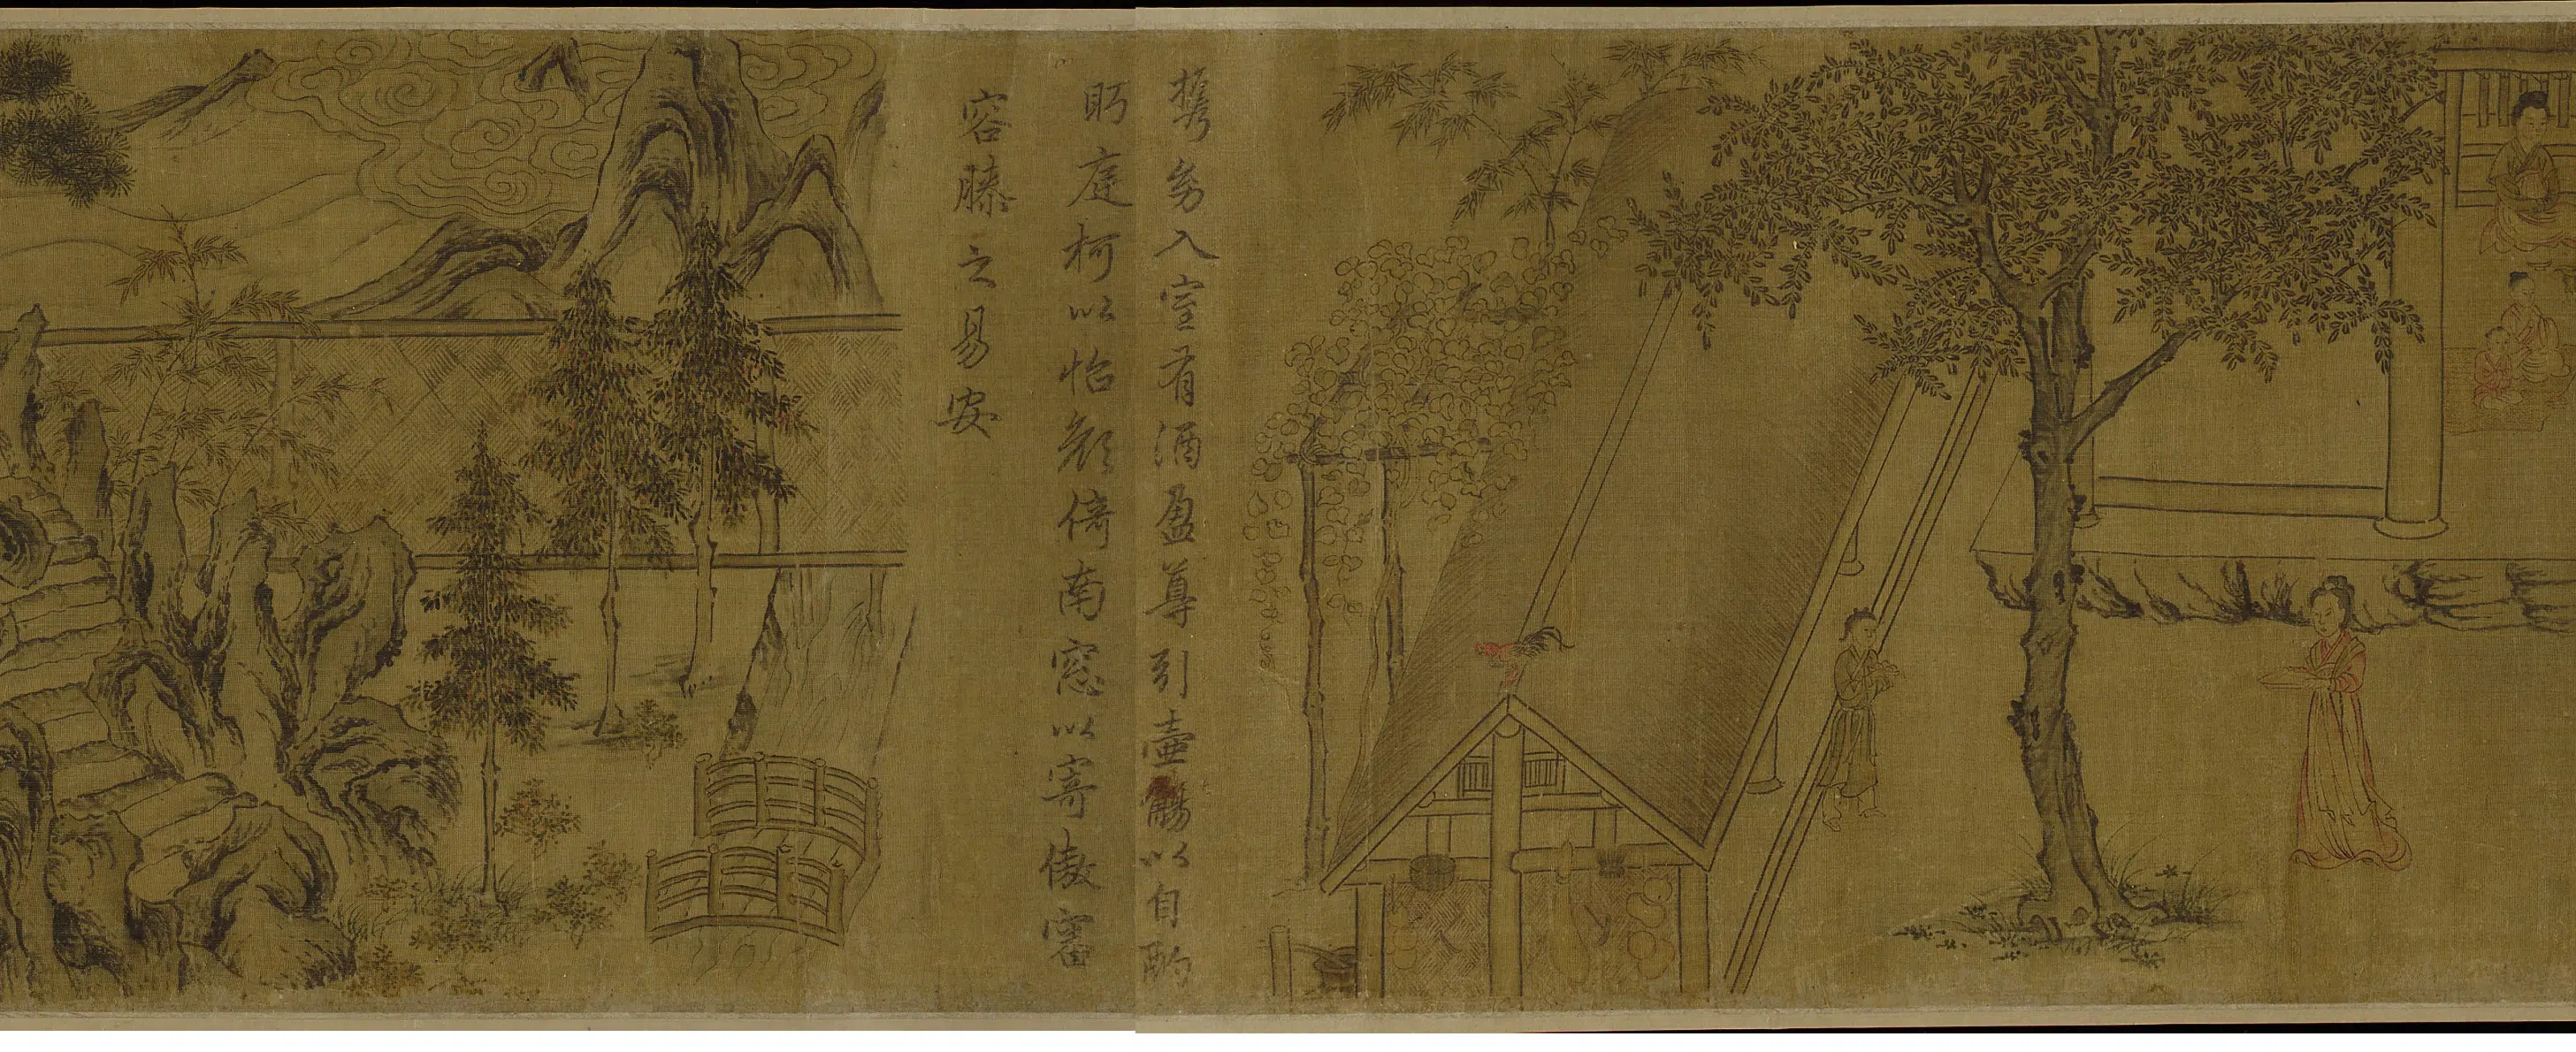 携幼入室有酒盈尊引壺觴以自酌
眄庭柯以怡顔倚南窓以寄傲審
容膝之易安